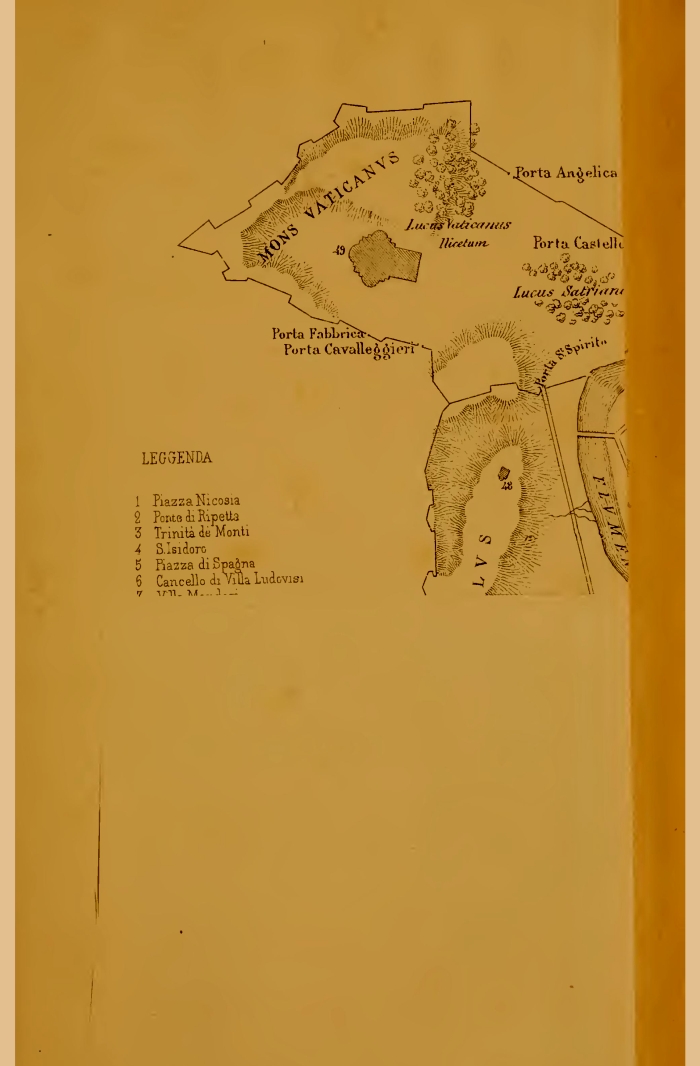 Porta Angelica
MONS VATICANVS
Lucus Vaticanus
Ilicetum
49
Porta Castell
Lucus Satrian
Porta Fabbrica
Porta Cavalleggieri
Porta S. Spirito
LEGGENDA
48
FLVMEN
LVS
1 Piazza Nicosia
2 Ponte di Ripetta
3 Trinità de' Monti
4 S. Isidoro
5 Piazza di Spagna
6 Cancello di Villa Ludovisi
7